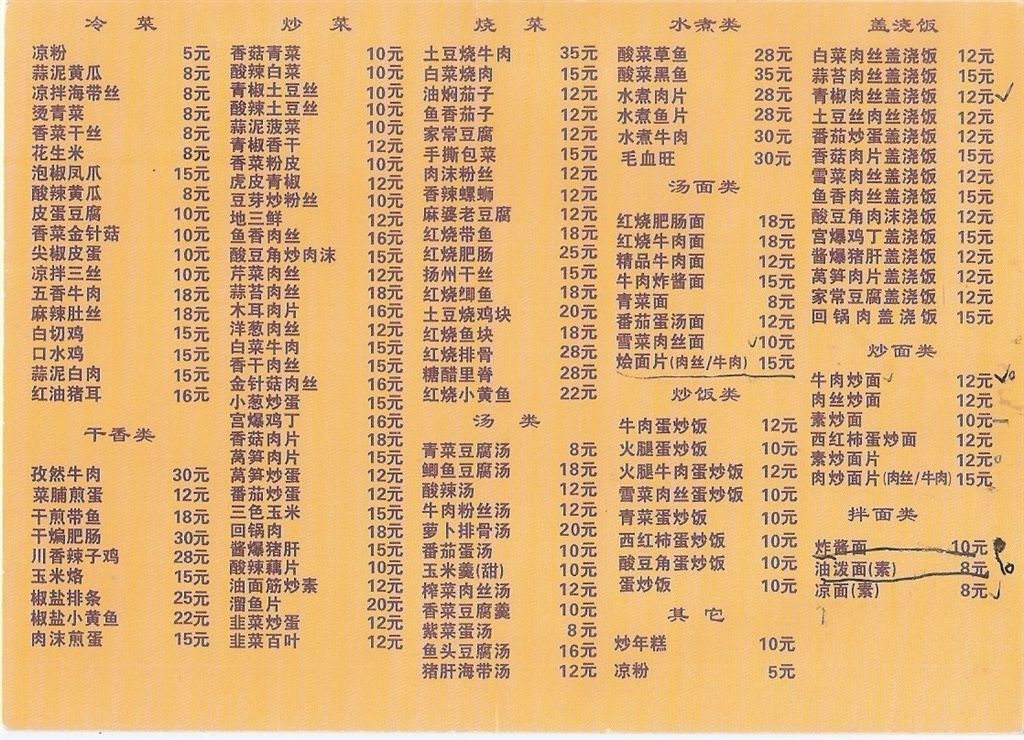 冷 菜
凉粉 5元
蒜泥黄瓜 8元
凉拌海带丝 8元
烫青菜 8元
香菜干丝 8元
花生米 8元
泡椒凤爪 15元
酸辣黄瓜 8元
皮蛋豆腐 10元
香菜金针菇 10元
尖椒皮蛋 10元
凉拌三丝 10元
五香牛肉 18元
麻辣肚丝 18元
白切鸡 15元
口水鸡 15元
蒜泥白肉 15元
红油猪耳 16元
干香类
孜然牛肉 30元
菜脯煎蛋 12元
干煎带鱼 18元
干煸肥肠 30元
川香辣子鸡 28元
玉米烙 15元
椒盐排条 25元
椒盐小黄鱼 22元
肉沫煎蛋 15元
炒 菜
香菇青菜 10元
酸辣白菜 10元
青椒土豆丝 10元
酸辣土豆丝 10元
蒜泥菠菜 10元
青椒香干 12元
香菜粉皮 10元
虎皮青椒 12元
豆芽炒粉丝 10元
地三鲜 12元
鱼香肉丝 16元
酸豆角炒肉沫 15元
芹菜肉丝 15元
蒜苔肉丝 15元
木耳肉片 16元
洋葱肉丝 12元
白菜牛肉 15元
香干肉丝 15元
金针菇肉丝 16元
小葱炒蛋 15元
宫爆鸡丁 16元
香菇肉片 18元
莴笋肉片 15元
莴笋炒蛋 12元
番茄炒蛋 12元
三色玉米 15元
回锅肉 18元
酱爆猪肝 15元
酸辣藕片 10元
油面筋炒素 12元
溜鱼片 20元
韭菜炒蛋 12元
韭菜百叶 12元
烧 菜
土豆烧牛肉 35元
白菜烧肉 15元
油焖茄子 12元
鱼香茄子 12元
家常豆腐 12元
手撕包菜 15元
肉沫粉丝 12元
香辣螺蛳 12元
麻婆老豆腐 12元
红烧带鱼 18元
红烧肥肠 25元
扬州干丝 15元
红烧鲫鱼 18元
土豆烧鸡块 20元
红烧鱼块 18元
红烧排骨 28元
糖醋里脊 28元
红烧小黄鱼 22元
汤 类
青菜豆腐汤 8元
鲫鱼豆腐汤 18元
酸辣汤 12元
牛肉粉丝汤 12元
萝卜排骨汤 20元
番茄蛋汤 10元
玉米羹(甜) 10元
榨菜肉丝汤 12元
香菜豆腐羹 10元
紫菜蛋汤 8元
鱼头豆腐汤 16元
猪肝海带汤 12元
水煮类
酸菜草鱼 28元
酸菜黑鱼 35元
水煮肉片 28元
水煮鱼片 28元
水煮牛肉 30元
毛血旺 30元
汤面类
红烧肥肠面 18元
红烧牛肉面 18元
精品牛肉面 12元
牛肉炸酱面 15元
青菜面 8元
番茄蛋汤面 12元
雪菜肉丝面 10元
烩面片(肉丝/牛肉) 15元
炒饭类
牛肉蛋炒饭 12元
火腿蛋炒饭 10元
火腿牛肉蛋炒饭 12元
雪菜肉丝蛋炒饭 10元
青菜蛋炒饭 10元
西红柿蛋炒饭 10元
酸豆角蛋炒饭 10元
蛋炒饭 10元
其它
炒年糕 10元
凉粉 5元
盖浇饭
白菜肉丝盖浇饭 12元
蒜苔肉丝盖浇饭 15元
青椒肉丝盖浇饭 12元
土豆丝肉丝盖浇饭 12元
番茄炒蛋盖浇饭 12元
香菇肉片盖浇饭 15元
雪菜肉丝盖浇饭 12元
鱼香肉丝盖浇饭 15元
酸豆角肉沫盖浇饭 12元
宫爆鸡丁盖浇饭 15元
酱爆猪肝盖浇饭 12元
莴笋肉片盖浇饭 12元
家常豆腐盖浇饭 12元
回锅肉盖浇饭 15元
炒面类
牛肉炒面 12元
肉丝炒面 12元
素炒面 10元
西红柿蛋炒面 12元
素炒面片 12元
肉炒面片(肉丝/牛肉) 15元
拌面类
炸酱面 10元
油泼面(素) 8元
凉面(素) 8元